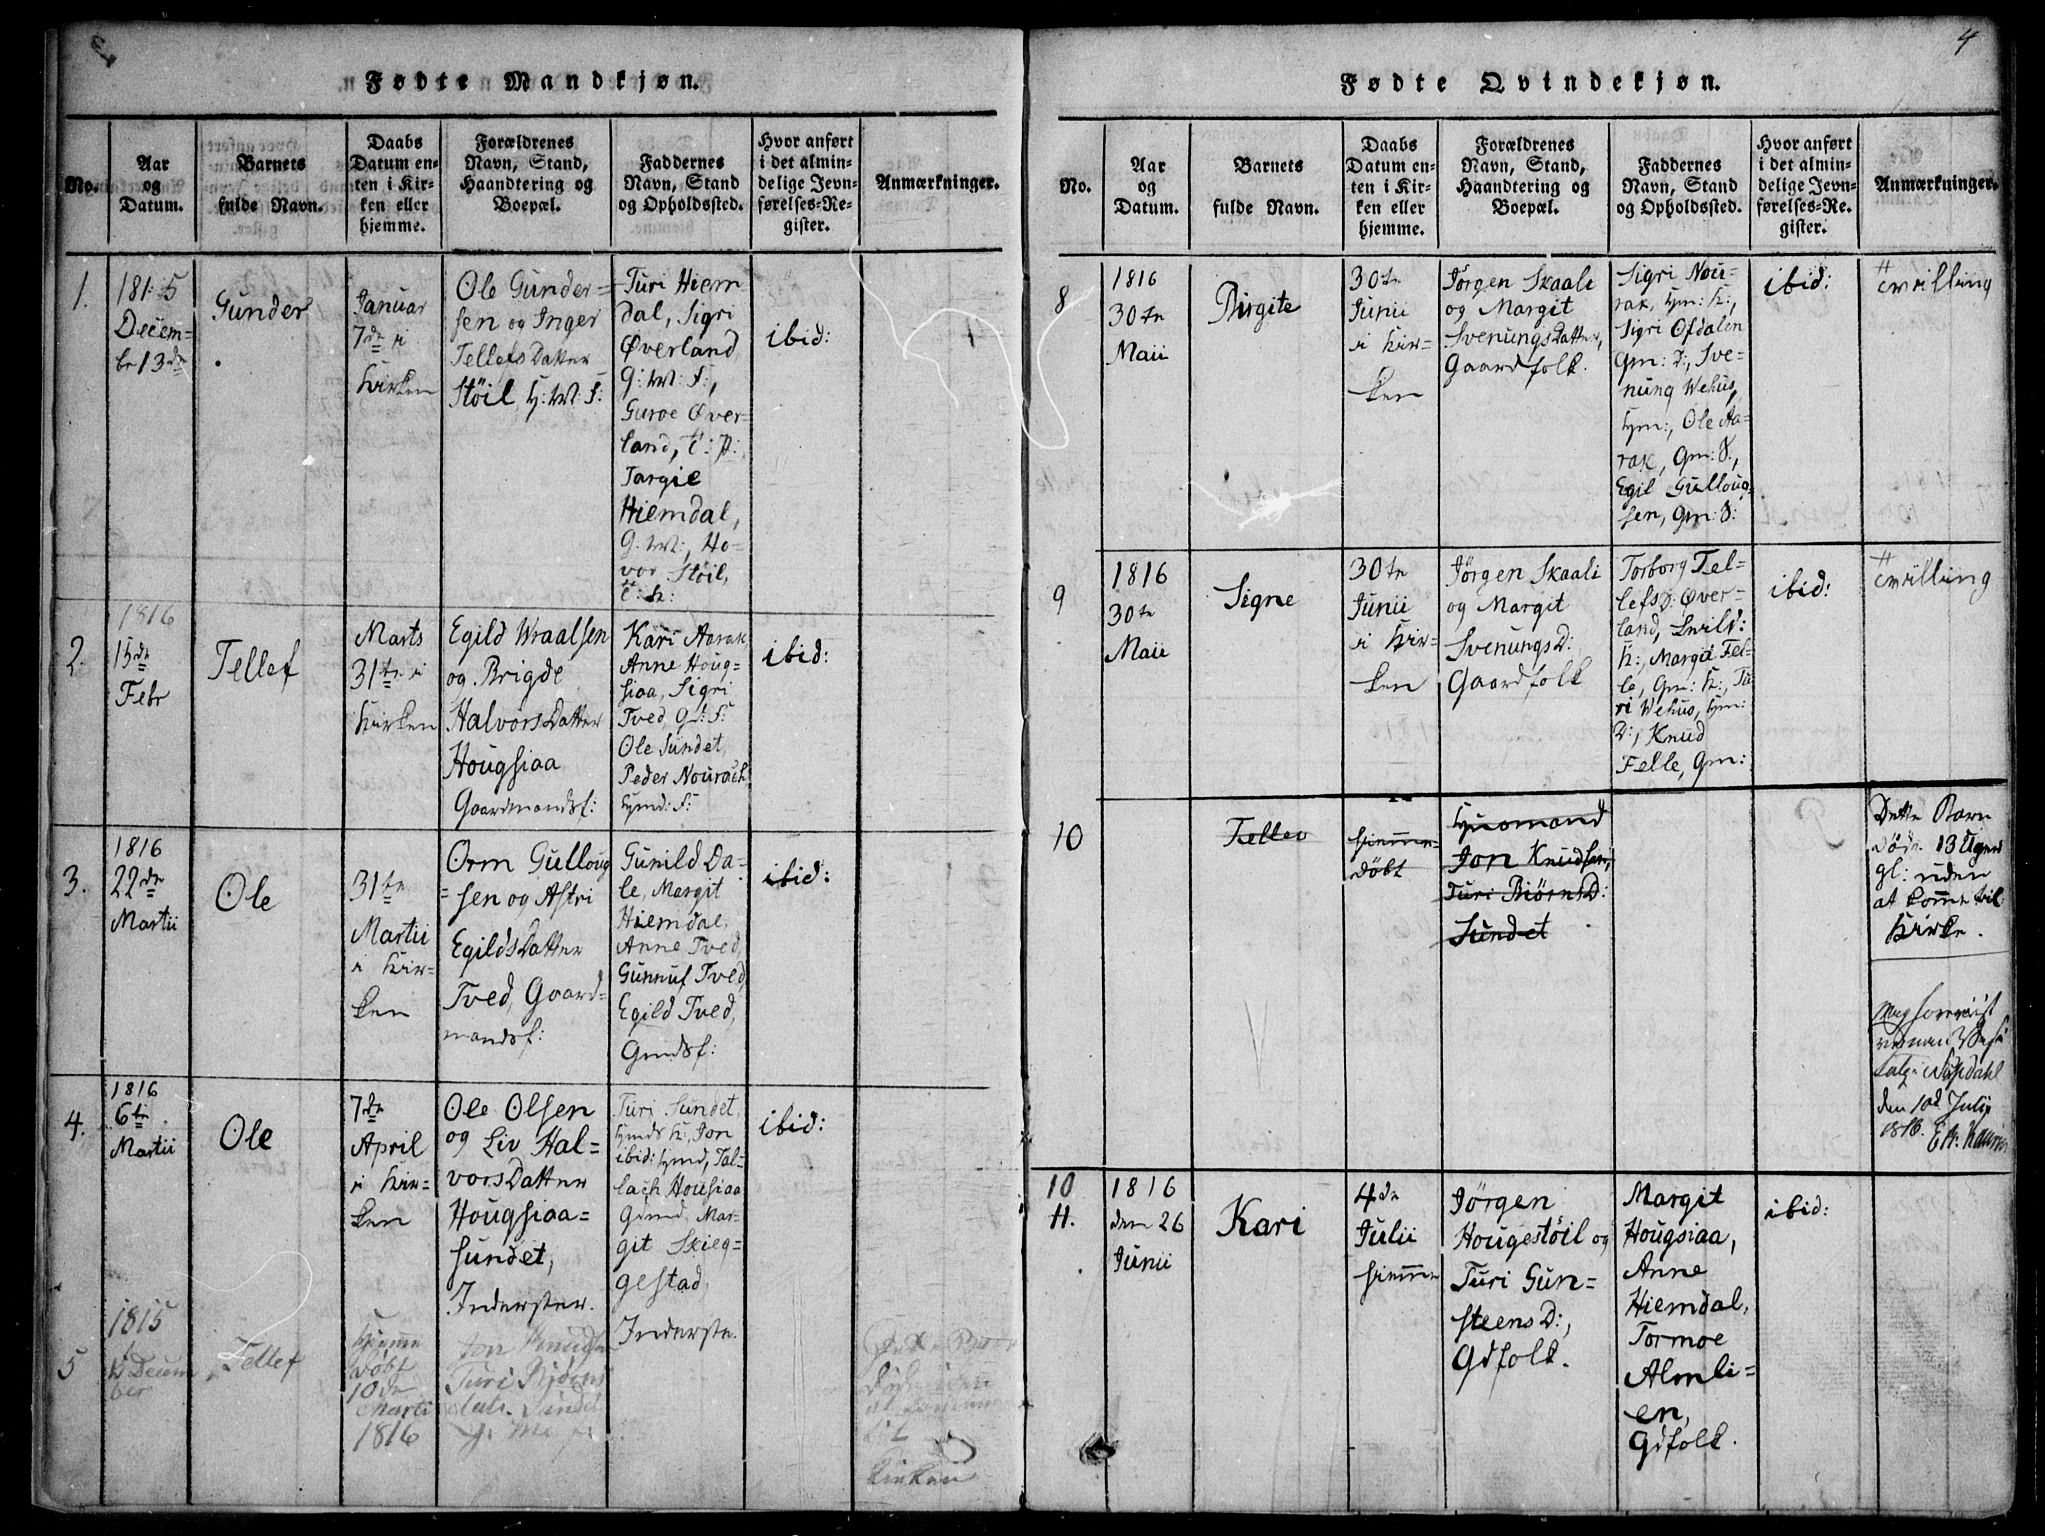 4
Fødte Mandkjøn.
No.
Aar
og
Datum.
Barnets
fulde Navn.
Daabs
Datum en-
ten i Kir-
ken eller
hjemme.
Forældrenes
Navn, Stand,
Haandtering og
Boepæl.
Faddernes
Navn, Stand
og Opholdssted.
Hvor anført
i det almin-
delige Jevn-
førelses-Re-
gister.
Anmærkninger.
1.
1815
Decem-
br 13de
Gunder
Januar
7de i
Kirken
Ole Gunder=
sen og Inger
Tellefs Datter
Støil, H: W: F:
Turi Hiem
dal, Sigri
Øverland
G: W: F:,
Guroe Øver-
land, T: P:
Targie
Hiemdal,
G: W:, Ho-
vor Støil,
T: K:
ibid:
2.
1816
15de
Febr
Tellef
Marts
31te i
Kirken
Egild Wraalsen
og Brigde
Halvors Datter
Hougsiaa
Gaardmandsf:
Kari Aarak
Anne Houg-
siaa, Sigri
Tved, Gd: F:
Ole Sundet,
Peder Nourack
Hymd: F:
ibid:
3.
1816
22de
Martii
Ole
31te
Martii
i Kir-
ken
Orm Gulloug
=sen og Astri
Egilds Datter
Tved, Gaard=
mandsf:
Gunild Da-
le, Margit
Hiemdal,
Anne Tved,
Gunnuf Tved,
Egild Tved,
Gmdsf:
ibid:
4.
1816
6te
Martii
Ole
7de
April
i Kir-
ken
Ole Olsen
og Liv Hal-
vors Datter
Hougsiaa=
sundet,
Inderster.
Turi Sundet,
Hymds K:, Jon
ibid: Hymd, Tal-
lach Housiaa
Gdmd, Mar-
git Skieg-
gestad,
Inderste.
ibid:
5
1815
Decem
ber
Tellef
Hjemme
Døbt
10de
Marti
1816
Jon Knudse
Turi Biørns
Fødte Qvindekjøn.
No.
Aar
og
Datum.
Barnets
fulde Navn.
Daabs
Datum en-
ten i Kir-
ken eller
hjemme.
Forældrenes
Navn, Stand,
Haandtering og
Boepæl.
Faddernes
Navn, Stand
og Opholdssted.
Hvor anført
i det almin-
delige Jevn-
førelses-Re-
gister.
Anmærkninger.
8
1816
30te
Maii
Birgite
30te
Junii
i Kir-
ken
Jørgen Skaali
og Margit
Svenungs Datter,
Gaardfolk.
Sigri Nou-
rak, Hym: K:,
Sigri Ofdalen
Gm: D:, Sve-
nung Wehus,
Hym:, Ole Aa-
rak, Gm: S:,
Egil Gulloug-
sen, Gm: S:
ibid:
Tvilling
9
1816
30te
Maii
Signe
30te
Junii
i Kir-
ken
Jørgen Skaali
og Margit
Svenungs D:
Gaardfolk
Torborg Tel-
lefsD: Øver-
land, Snild:
K:, Margit Fel-
le, Gm: K:, Tu
ri Wehus, Hym:
D:, Knud
Felle, Gm:
ibid:
Tvilling
10
Tellev
Hiemme-
døbt
Huusmand
Jon Knudsen,
Turi BiørnsD:
Sundet
Dette Barn
døde 13 Uger
gl: uden
at komme til
Kirke.
den 10de July
1816.
10
11.
1816
den 26
Junii
Kari
4de
Julii
Hiemme
Jørgen
Hougestøil og
Turi Gun=
steens D:,
Gdfolk.
Margit
Hougsiaa,
Anne
Hiemdal,
Tormoe
Almli=
en,
Gdfolk.
ibid: